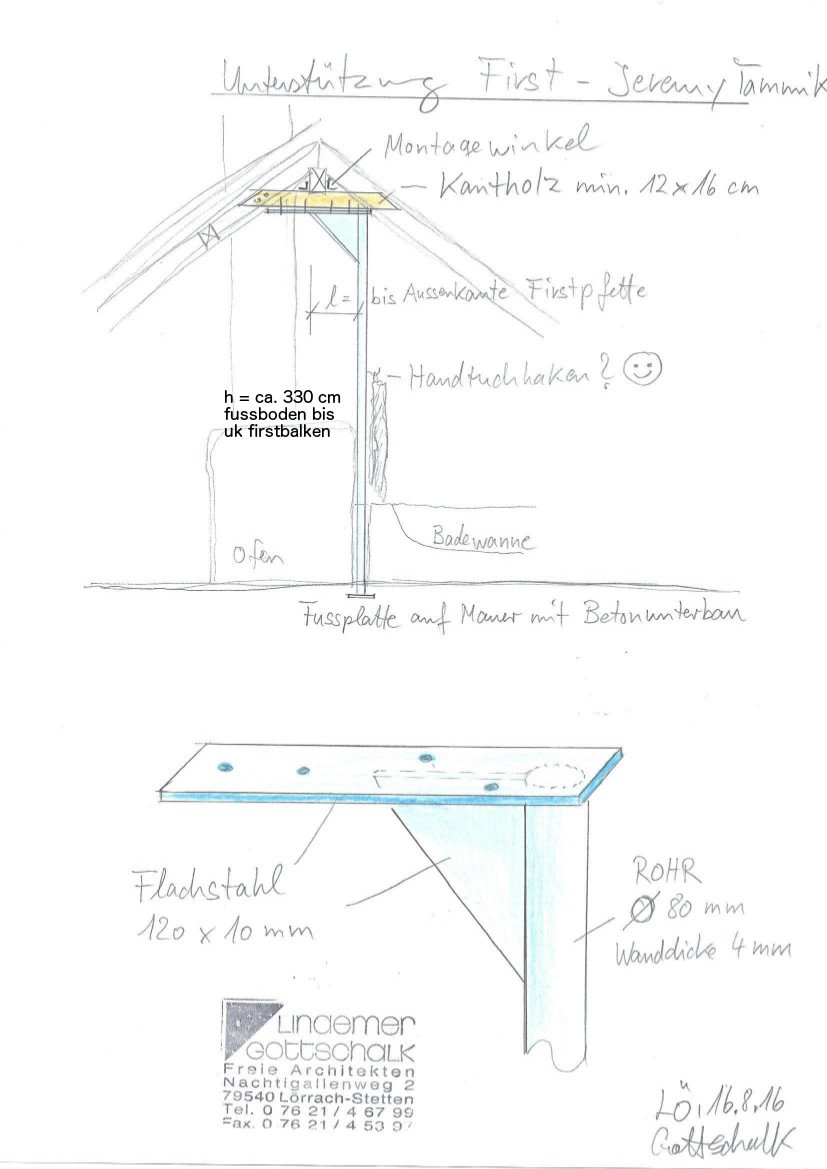 Unterstützung First - Jeremy Tammik
Montagewinkel
Kantholz min. 12 x 16 cm
l = bis Aussenkante Firstpfette
Handtuchhaken?
h = ca. 330 cm
fussboden bis
uk firstbalken
Ofen
Badewanne
Fussplatte auf Mauer mit Betonunterbau
Flachstahl
120 x 10 mm
ROHR
Ø 80 mm
Wanddicke 4 mm
Lindemer
Gottschalk
Freie Architekten
Nachtigallenweg 2
79540 Lörrach-Stetten
Tel. 0 76 21 / 4 67 99
Fax. 0 76 21 / 4 53
LÖ, 16.8.16
Gottschalk